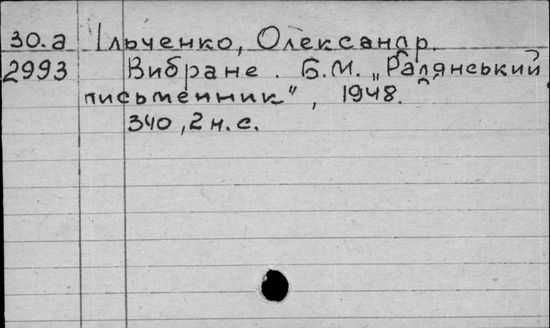 30.а Ільченко, Олександр.
2993 Вибране. Б.М. „Радянський
письменник", 1948.
340, 2 н. с.